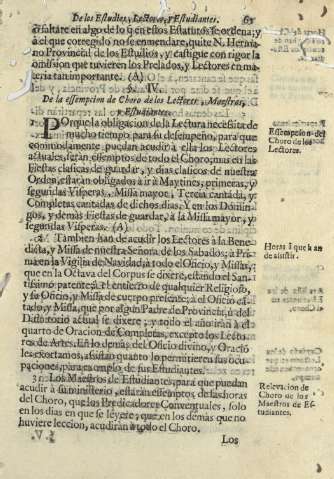 De los Estudios, Lectores, y Estudiantes. 65
si faltare en algo de lo q en estos Estatutos se ordena; y
à el que corregido no se enmendare, quite N. Herma-
no Provincial de los Estudios, y castigue con rigor la
omission que tuvieren los Prelados, y Lectores en ma-
teria tan importante. (A)
§. IV.
De la essempcion de Choro de los Lectores, Maestros,
y Estudiantes.
POrque la obligacion de la Lectura necessita de
mucho tiempo para su desempeño, para que
commodamente puedan acudir à ella los Lectores
actuales, seràn essemptos de todo el Choro; mas en las
Fiestas clasicas de guardar, y dias clasicos de nuestra
Orden, estaràn obligados à ir à Maytines, primeras, y
segundas Visperas, Missa mayor, Tercia cantada, y
Completas cantadas de dichos dias. Y en los Domin-
gos, y demàs Fiestas de guardar, à la Missa mayor, y
segundas Visperas. (A)
2 Tambien han de acudir los Lectores à la Bene-
dicta, y Missa de nuestra Señora de los Sabados; à Pri-
ma en la Vigilia de Navidad; à todo el Oficio, y Missa,
que en la Octava del Corpus se dixere, estando el San-
tissimo patente; à el entierro de qualquier Religioso,
y su Oficio, y Missa de cuerpo presente; à el Oficio can-
tado, y Missa, que por algun Padre de Provincia, ù del
Difinitorio actual se dixere; y todo el año iràn à el
quarto de Oracion de Completas, excepto los Lecto-
res de Artes. En lo demàs del Oficio divino, y Oracio
les exortamos, assistan quanto lo permitieren sus ocu-
paciones, para exemplo de sus Estudiantes.
3 Los Maestros de Estudiantes, para que puedan
acudir à su ministerio, estaràn essemptos de las horas
del Choro, que los Predicadores Conventuales, solo
en los dias en que se lèyere; que en los demàs que no
huviere leccion, acudiràn à todo el Choro.
§. V. Los
Essempcion del
Choro de los
Lectores.
Horas à que han
de assistir.
Relevacion de
Choro de los
Maestros de Es-
tudiantes.